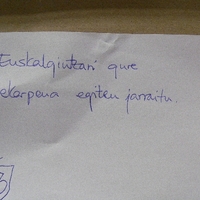 Euskalgintzari gure
ekarpena egiten jarraitu.